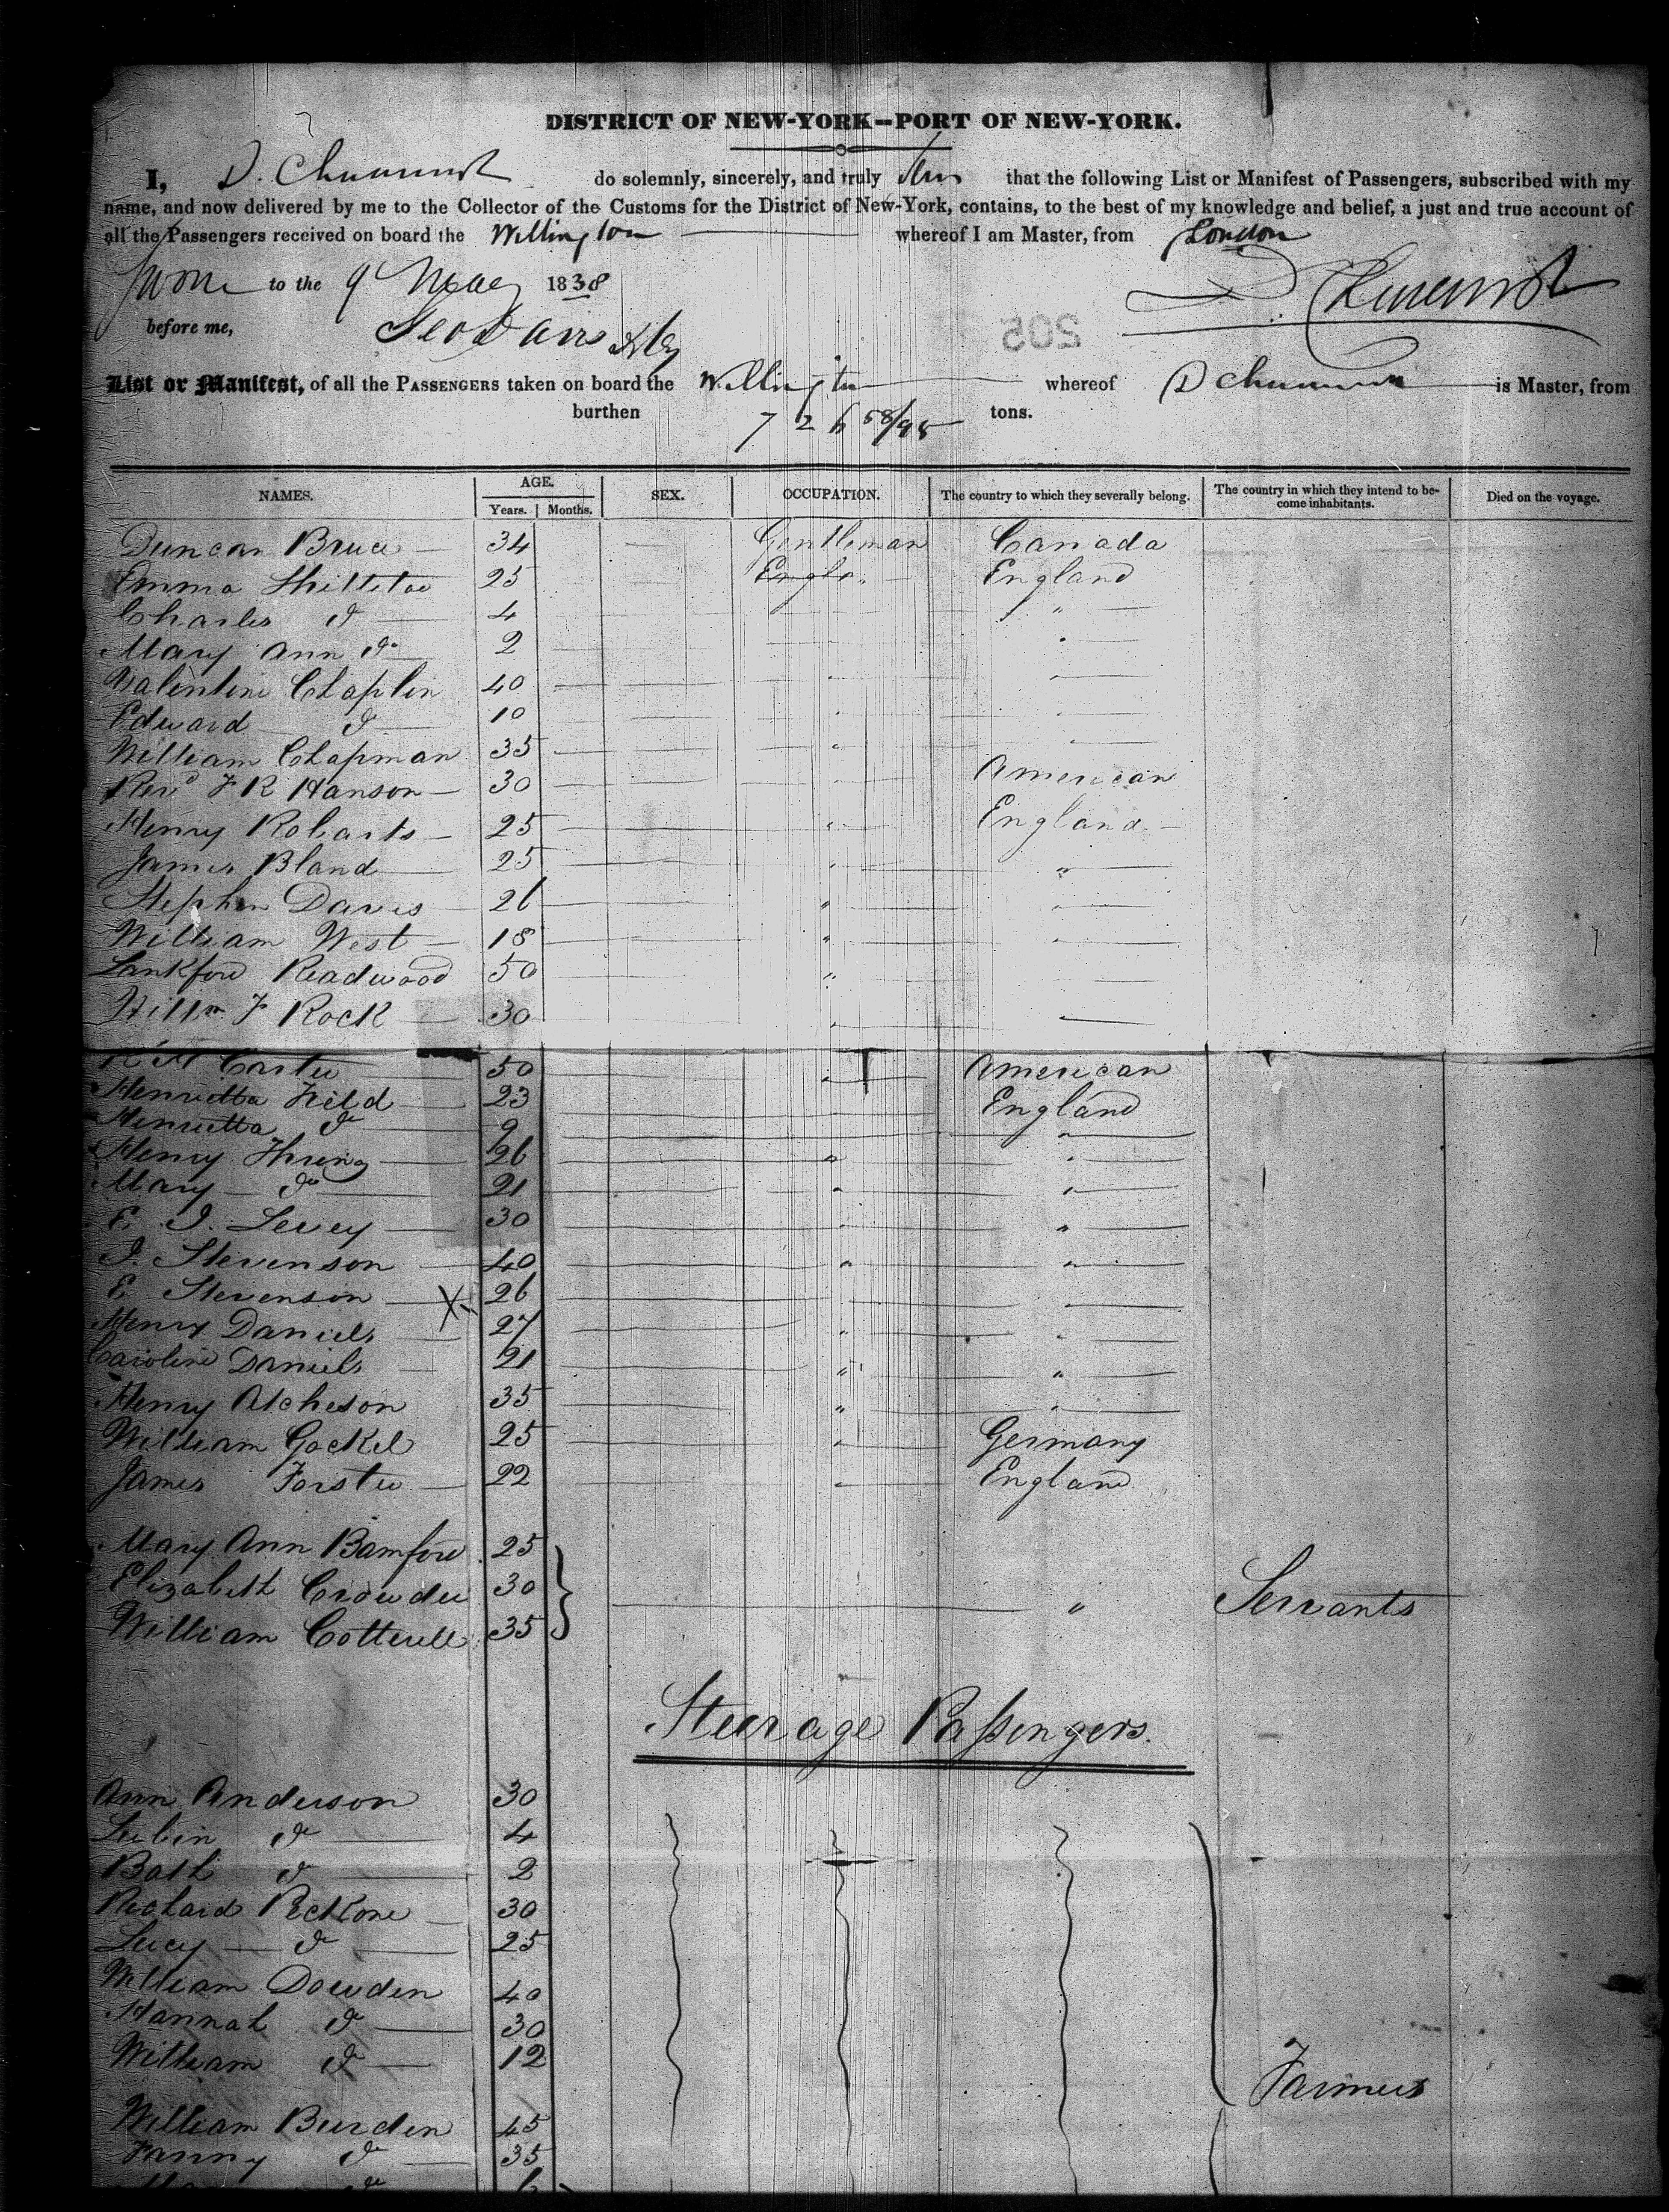 DISTRICT OF NEW-YORK--PORT OF NEW-YORK.
I, D. do solemnly, sincerely, and truly that the following List or Manifest of Passengers, subscribed with my
name, and now delivered by me to the Collector of the Customs for the District of New-York, contains, to the best of my knowledge and belief, a just and true account of
all the Passengers received on board the Wellington whereof I am Master, from London
to the 9 May 1838
before me,
502
List or Manifest, of all the PASSENGERS taken on board the Wellington whereof D is Master, from
burthen 726 58/95 tons.
NAMES. AGE. SEX. OCCUPATION. The country to which they severally belong. The country in which they intend to be- come inhabitants. Died on the voyage.
Years. Months.
Duncan Bruce 34 Gentleman Canada
Emma 25 England
Charles do 4 "
Mary Ann do 2 "
Valentine Chaplin 40 " "
Edward do 10 "
William Chapman 35 "
Revd F R Hanson 30 " American
Henry Robarts 25 " England
James Bland 25 " "
Stephen Davis 26 " "
William West 18 " "
Lankford Readwood 50 "
Willm F Rock 30 "
R H Carter 50 " American
Henrietta Field 23 England
Henrietta do 9 "
Henry 26 " "
Mary do 21 " "
E. I. Levey 30 " "
J. Stevenson 40 " "
E Stevenson X 26 "
Henry Daniels 27 " "
Caroline Daniels 21 " "
Henry Atcheson 35 " "
William Gockel 25 " Germany
James Forster 22 " England
Mary Ann Bamford 25
Elizabeth Crowder 30 " Servants
William Cotterell 35
Steerage Passengers.
Ann Anderson 30
do 4
do 2
Richard 30
Lucy do 25
William Dowden 40
Hannah do 30
William do 12 Farmers
William Burden 45
Fanny do 35
do 6